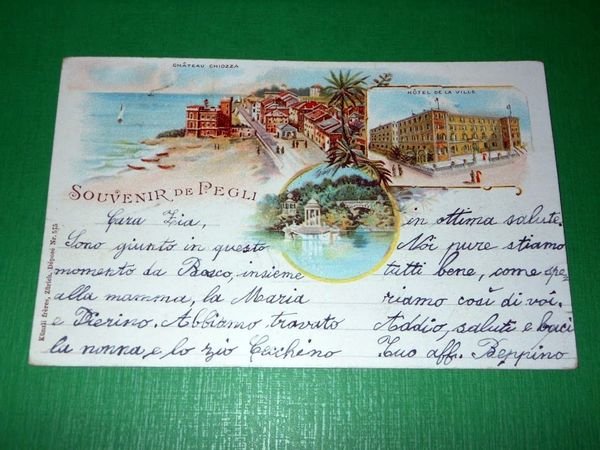 CHÂTEAU CHIOZZA
HÔTEL DE LA VILLE
SOUVENIR DE PEGLI
Künzli frères, Zürich, Déposé Nr. 515
Cara Zia,
Sono giunto in questo
momento da Bosco, insieme
alla mamma, la Maria
e Pierino. Abbiamo trovato
la nonna e lo zio Cecchino
in ottima salute.
Noi pure stiamo
tutti bene, come spe,
riamo così di voi.
Addio, saluti e baci
Tuo aff. Beppino